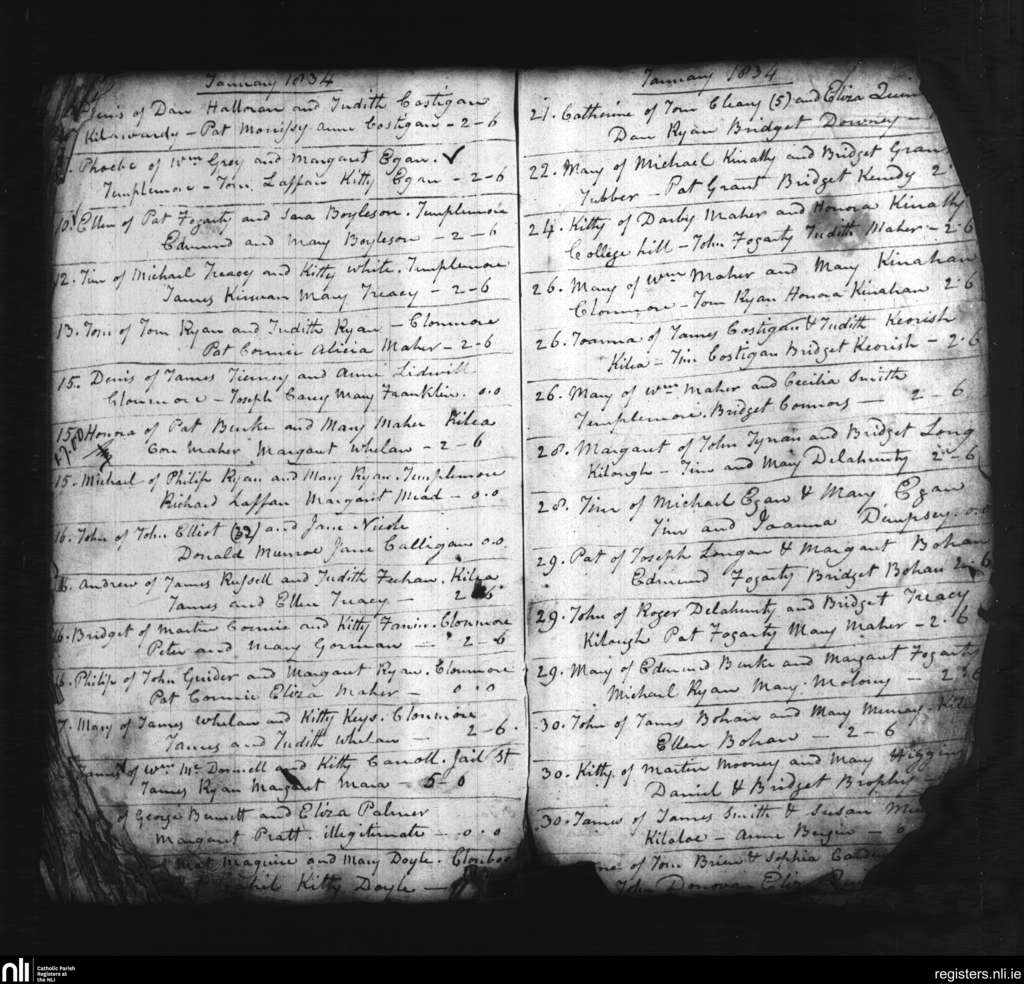 January 1834
Denis of Dan Halloran and Judith Costigan
Kilawardy - Pat Morrissy Anne Costigan - 2-6
Phoebe of Wm Grey and Margaret Egan. ✓
Templemore - Tom Laffan Kitty Egan - 2-6
10. Ellen of Pat Fogarty and Sara Boyleson. Templemore
Edmund and Mary Boyleson - 2-6
12. Tim of Michael Treacy and Kitty White. Templemore
James Kirwan Mary Treacy - 2-6
13. Tom of Tom Ryan and Judith Ryan - Clonmore
Pat Cormic Alicia Maher - 2-6
15. Denis of James Tierney and Anne Lidwill
Clonmore - Joseph Carey Mary Franklin. 0.0
15. Honora of Pat Burke and Mary Maher Kilea
Con Maher Margaret Whelan - 2-6
15. Michael of Philip Ryan and Mary Ryan. Templemore
Richard Laffan Margaret Mead - 0.0
16. John of John Elliot (32) and Jane Nicole
Donald Munroe Jane Calligan 0.0
16. Andrew of James Russell and Judith Feehan. Kilea
James and Ellen Treacy - 2 6
16. Bridget of Martin Cormic and Kitty Fanin. Clonmore
Peter and Mary Gorman - 2-6
16. Philip of John Guider and Margaret Ryan. Clonmore
Pat Cormic Eliza Maher - 0.0
7. Mary of James Whelan and Kitty Keys. Clonmore
James and Judith Whelan - 2-6.
James of Wm McDonnell and Kitty Carroll. Jail St
James Ryan Margaret Mara - 5-0
of George Burnett and Eliza Palmer
Margaret Pratt. illegitimate - 0.0
Mat Maguire and Mary Doyle.
Kitty Doyle -
January 1834
21. Catherine of Tom Cleary (5) and Eliza Quin
Dan Ryan Bridget Downey -
22. Mary of Michael Kinathy and Bridget Grant
Tubber - Pat Grant Bridget Kenedy 2
24. Kitty of Darby Maher and Honora Kinathy
College hill - John Fogarty Judith Maher - 2.6
26. Mary of Wm Maher and Mary Kinahan
Clonmore - Tom Ryan Honora Kinahan 2.6
26. Joanna of James Costigan & Judith Keorish
Kilea - Tim Costigan Bridget Keorish - 2.6
26. Mary of Wm Maher and Cecilia Smith
Templemore. Bridget Connors - 2-6
28. Margaret of John Tynan and Bridget Long
Kilough - Tim and Mary Delahunty 2-6
28. Tim of Michael Egan & Mary Egan
Tim and Joanna Dempsey. 0.0
29. Pat of Joseph Longan & Margaret Bohan
Edmund Fogarty Bridget Bohan 2-6
29. John of Roger Delahunty and Bridget Treacy
Kilough Pat Fogarty Mary Maher - 2.6
29. Mary of Edmund Burke and Margaret Fogarty
Michael Ryan Mary Molony - 2.6
30. John of James Bohan and Mary Murray.
Ellen Bohan - 2-6
30. Kitty of Martin Mooney and Mary Higgin
Daniel & Bridget Brophy -
30. James of James Smith & Susan
Kilaloe - Anne Bergin -
of Tom Brien & Sophia
John Donovan Eliza
nli Catholic Parish
Registers at
the NLI
registers.nli.ie